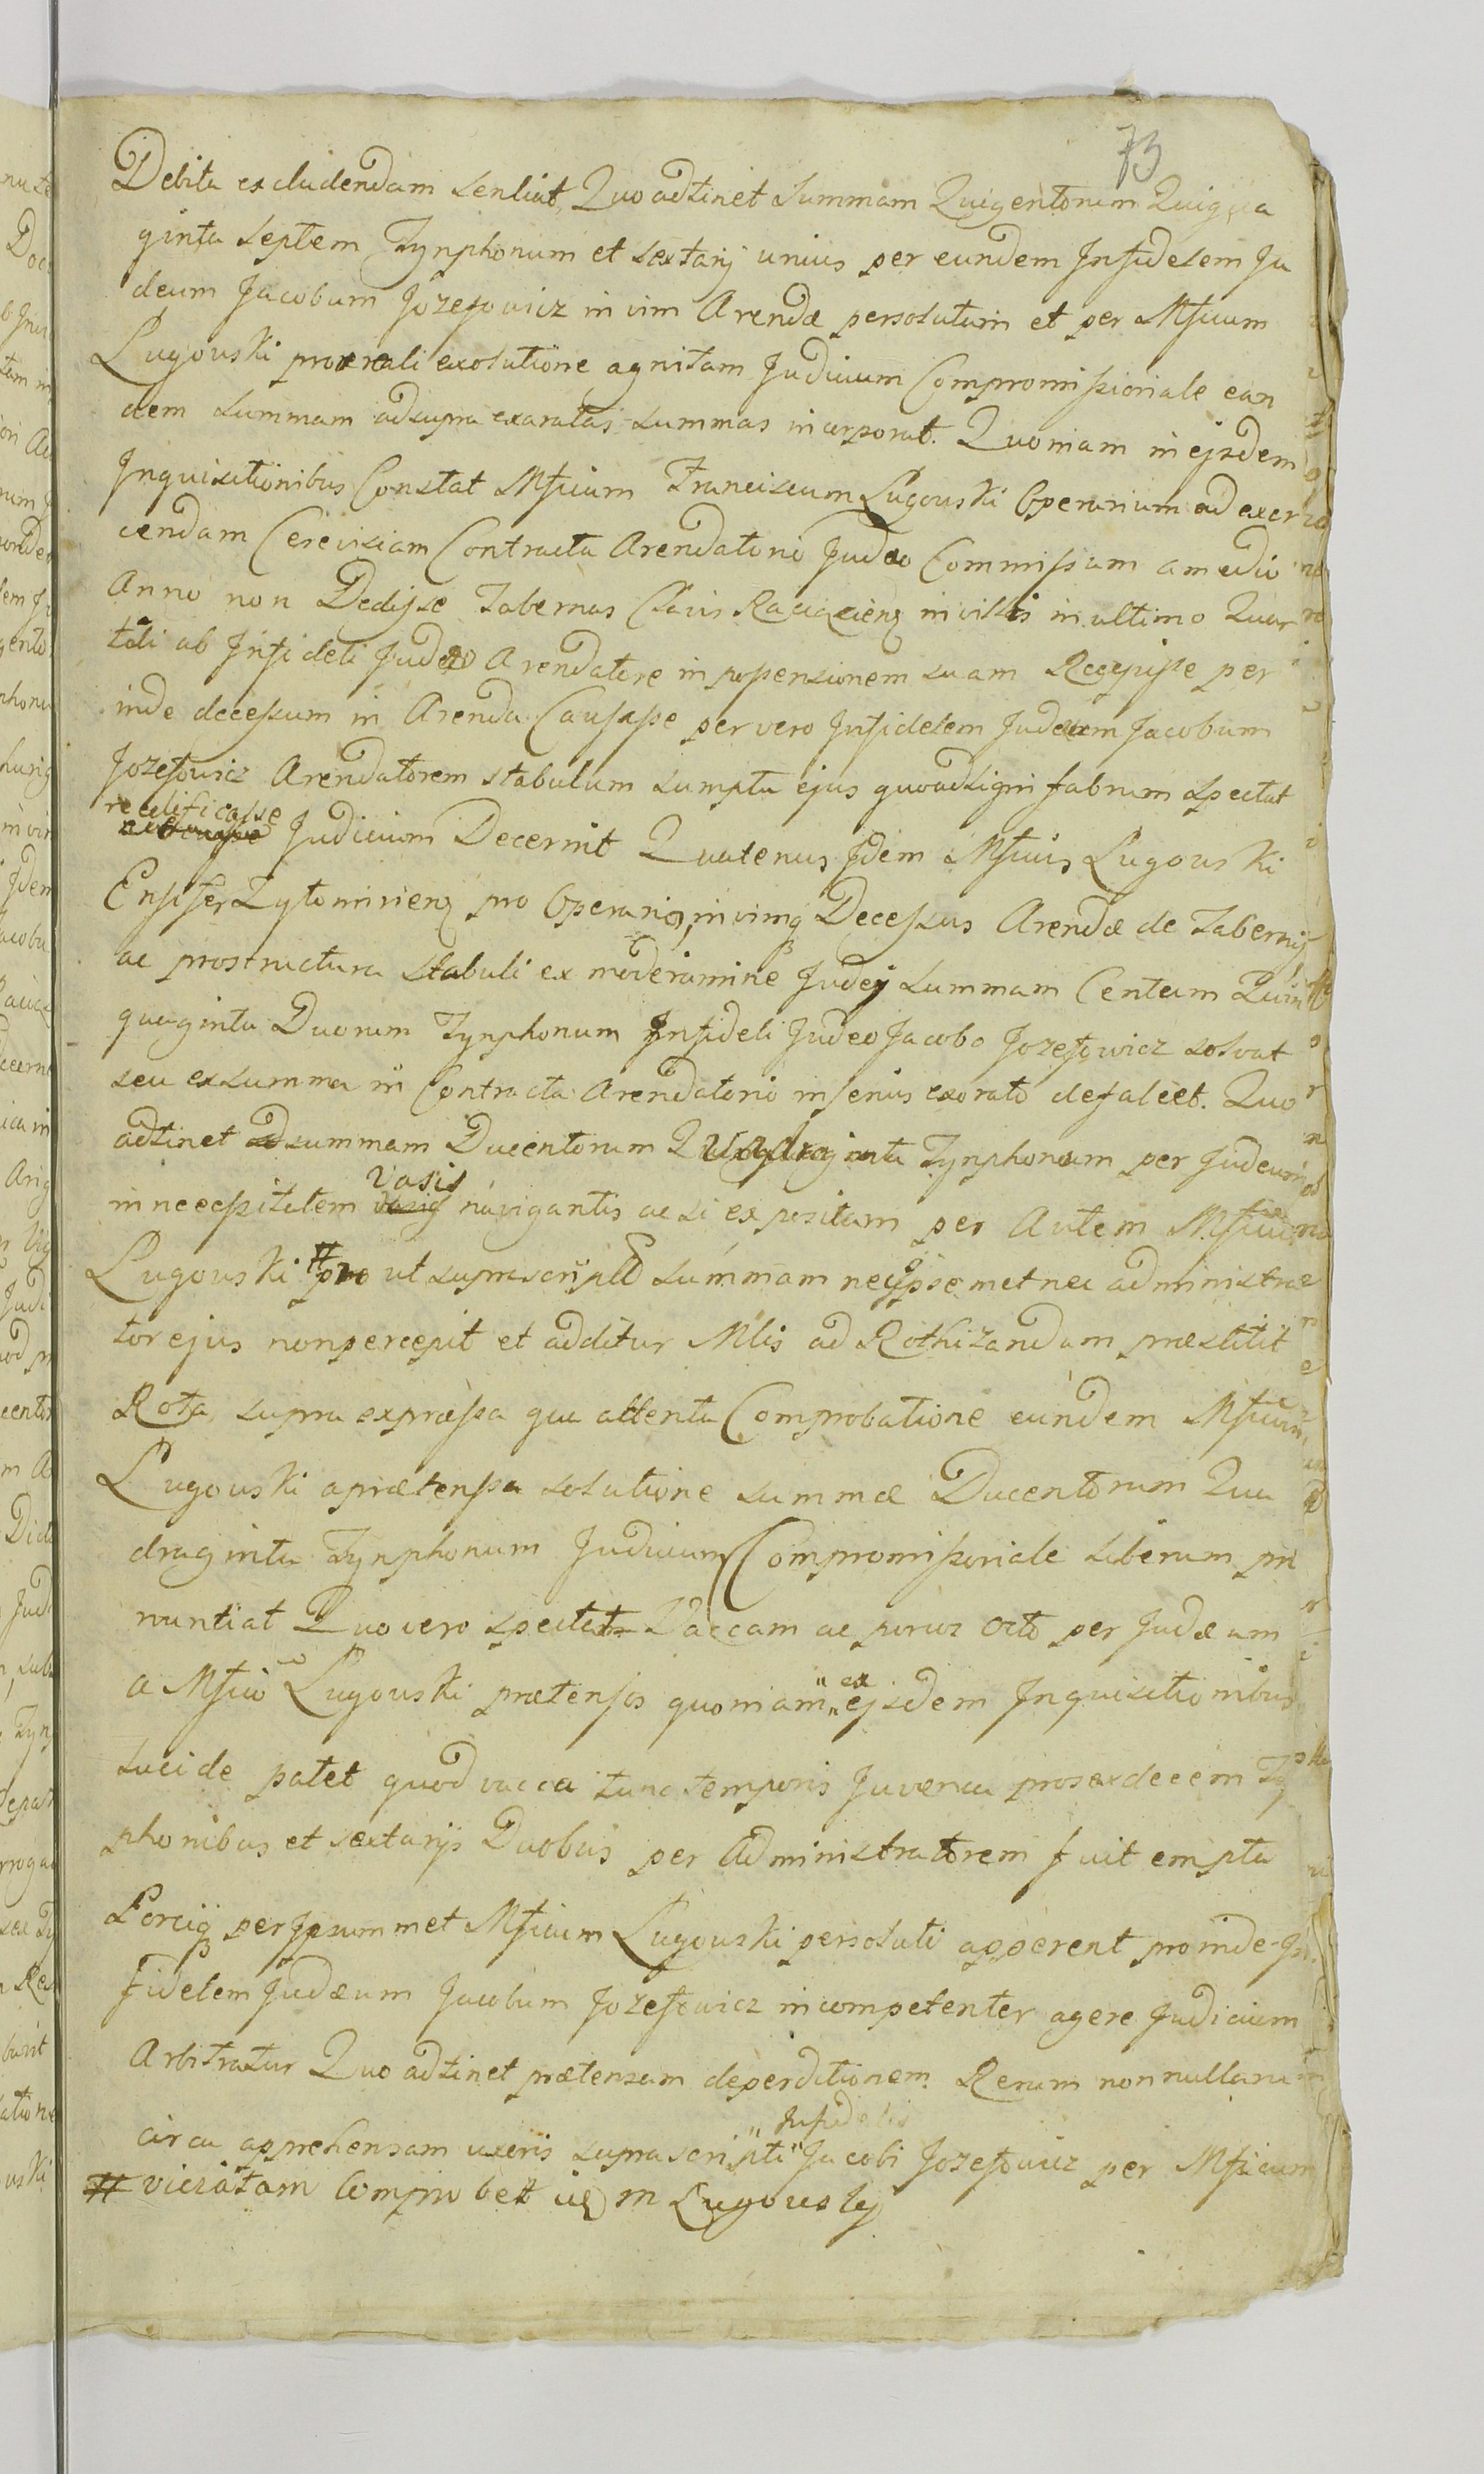 73
Debita excludendam sentiat, Quo adtinet Summam Quigentorum Quiqua
ginta septem Tynphonum et sextarij unius per eundem Infidelem Ju
deum Jacobum Jozefowicz in vim Arendæ persolutam et per Mficum
Lugowski pro reali exolutione agnitam Judicium Compromissionale ean
dem summam ad supra exaratas summas incorporat. Quoniam in ejsdem
Inquisitionibus Constat Mficum Franciscum Lugowski Operarium ad exer
cendam Cerevisiam Contractu Arendatorio Judæo Commissam a medio
Anno non Dedisse Tabernas Clavis in villis in ultimo Quar
tali ab Infideli Judæo Arendatore in propensionem suam Recepisse per
inde decessum in Arenda Causasse per vero Infidelem Judæum Jacobum
Jozefowicz Arendatorem stabulum sumptu ejus quo ad ligni fabrum spectat
reedificasse
Judicium Decernit Quatenus Idem Mficus Lugowski
Ensifer Zytomiriens pro Operario, in vimq Decessus Arendæ de Tabernis
ac pro structura stabuli ex moderamine Judej summam Centum Quin
quaginta Duorum Tynphonum Infideli Judeo Jacobo Jozefowicz solvat
seu ex summa in Contractu Arendatorio inferius exorato defalcet. Quo
adtinet ad summam Ducentorum Quadraginta Tynphonum per Judeum
Vasis
in necessitatem navigantis ac si expositam per Autem Mficum
Lugowski # pro ut suprascripto summam nec ipsemet nec administra
tor ejus non percepit et additur Mlis ad Rothizandam præstitit
Rota supra expræssa qua attenta Comprobatione eundem Mficum
Lugowski a prætensa solutione summæ Ducentorum Qua
draginta Tynphonum Judicium Compromissoriale liberum pro
nuntiat Quo vero spectat Vaccam ac porcos octo per Judæum
a Mfico Lugowski prætensos quoniam " ex ejsdem Inquisitionibus
lucide patet quod vacca tunc temporis Juvenca pro sexdecem Ty
phonibus et sextarijs Duobus per Administratorem fuit empta
Porciq per Ipsummet Mficum Lugowski persoluti apperent proinde In
fidelem Judæum Jacobum Jozefowicz incompetenter agere Judicium
Arbitratur Quo adtinet prætensam deperditionem Rerum nonnullaru
" Infidelis
circa apprehensam uxoris suprascripti " Jacobi Jozefowicz per Mficum
# viciatam Comprobet Lugowskj